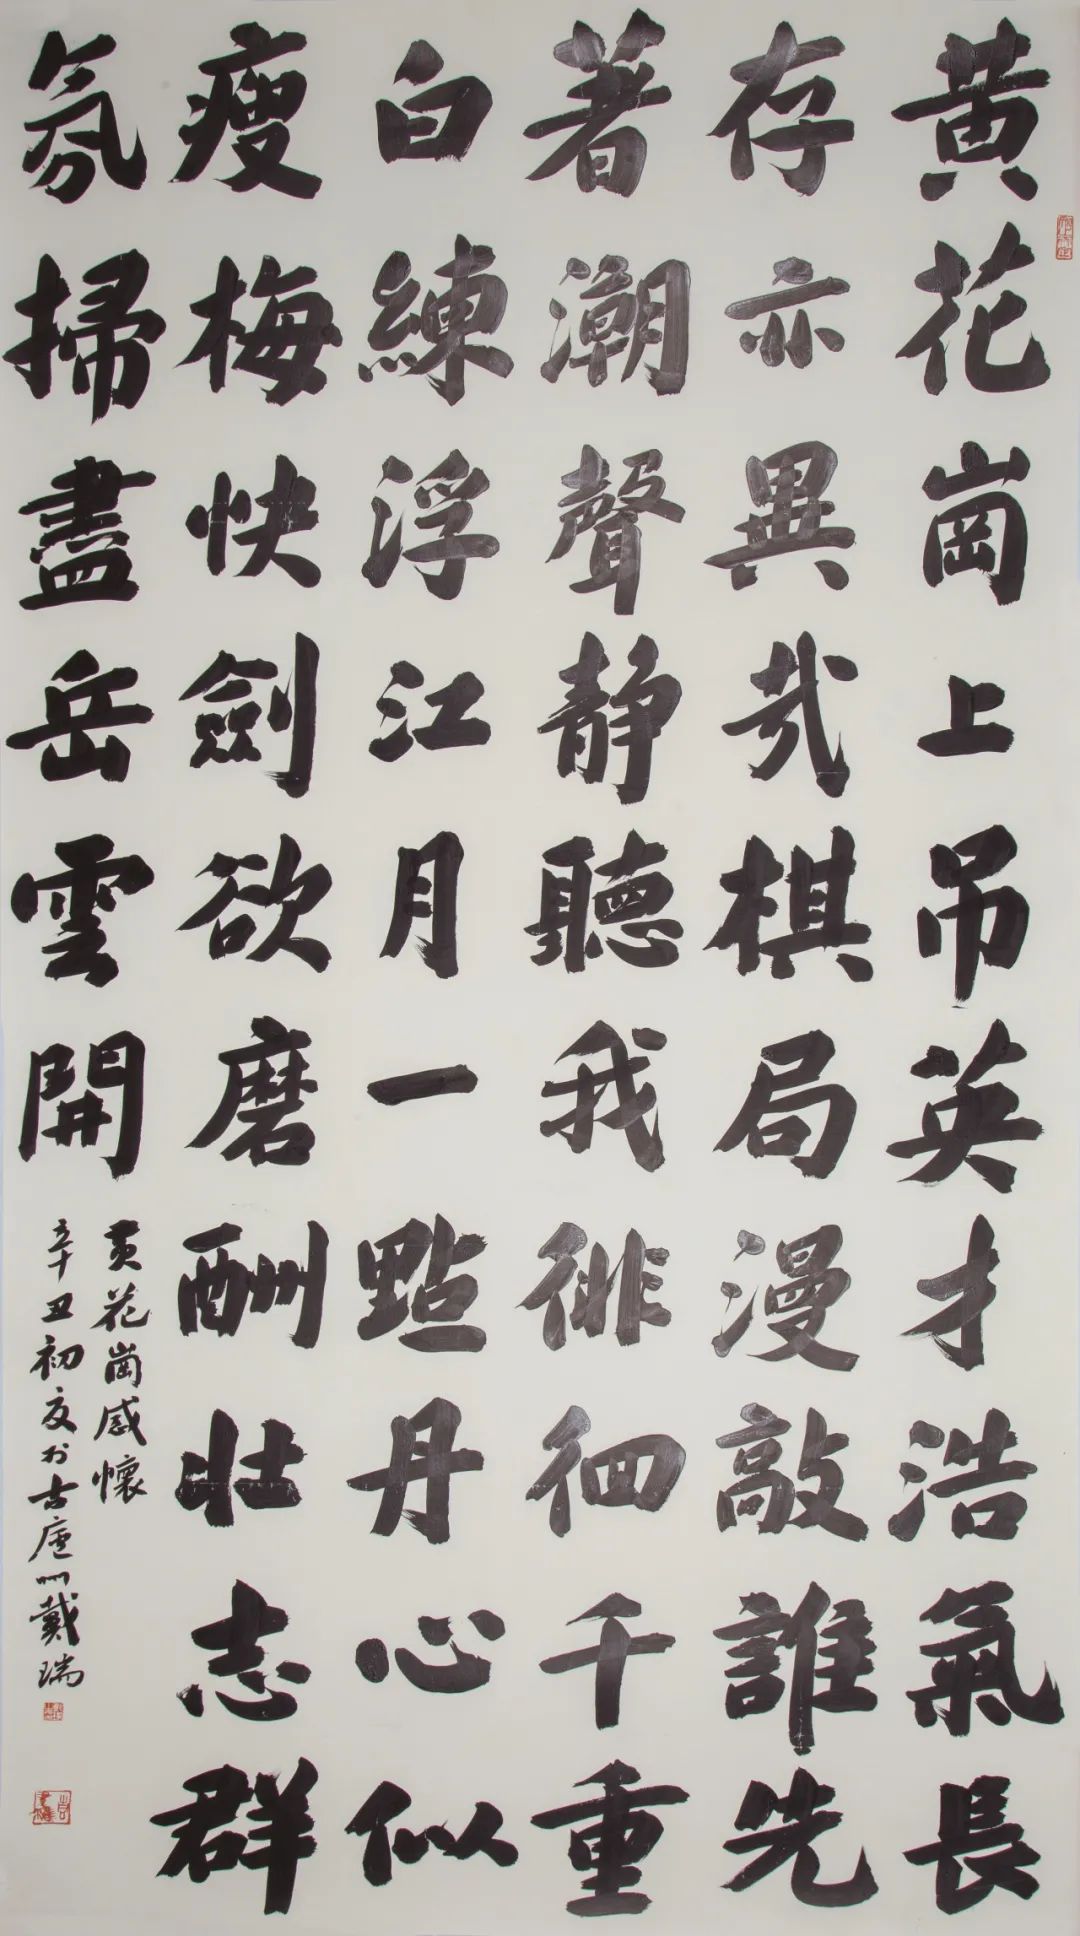 黄花崗上吊英才浩氣長
存亦異哉棋局漫敲誰先
著潮聲靜聽我徘徊千重
白練浮江月一點丹心似
瘦梅快劍欲磨酬壯志群
氛掃盡岳雲開
黄花崗感懷
辛丑初夏於古廬州戴瑞